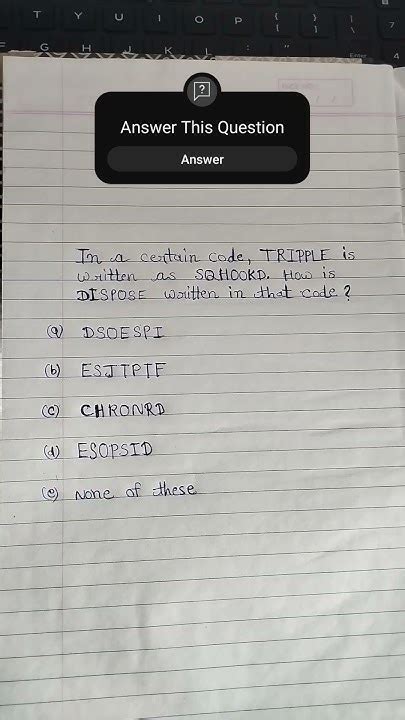 T Y U I O P { [ } ] | \
F G H J K L : ; " Enter 4
Answer This Question
Answer
In a certain code, TRIPPLE is
written as SQHOOKD. How is
DISPOSE written in that code?
(a) DSOESPI
(b) ESJTPTF
(c) CHRONRD
(d) ESOPSID
(e) None of these